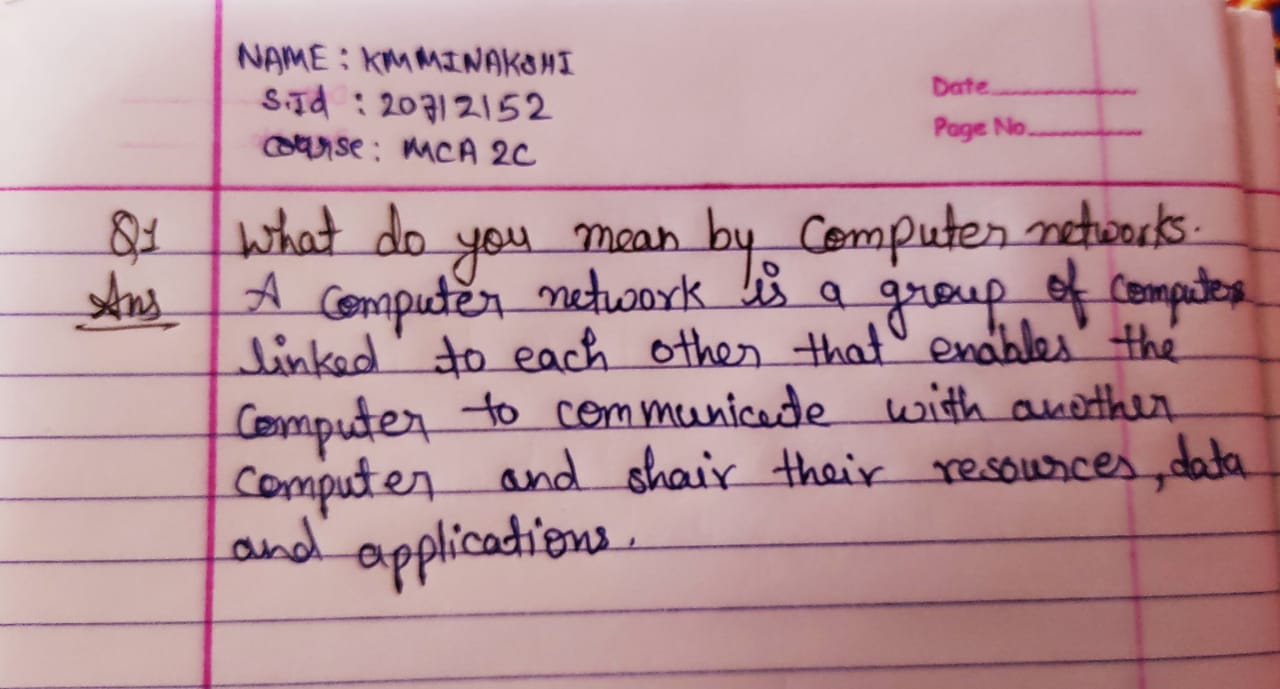 NAME : KMMINAKSHI
S.Id : 20712152
Date
course : MCA 2C
Page No.
Q1 What do you mean by Computer networks.
Ans A Computer network is a group of Computers
linked to each other that enables the
Computer to communicate with another
Computer and shair their resources, data
and applications.